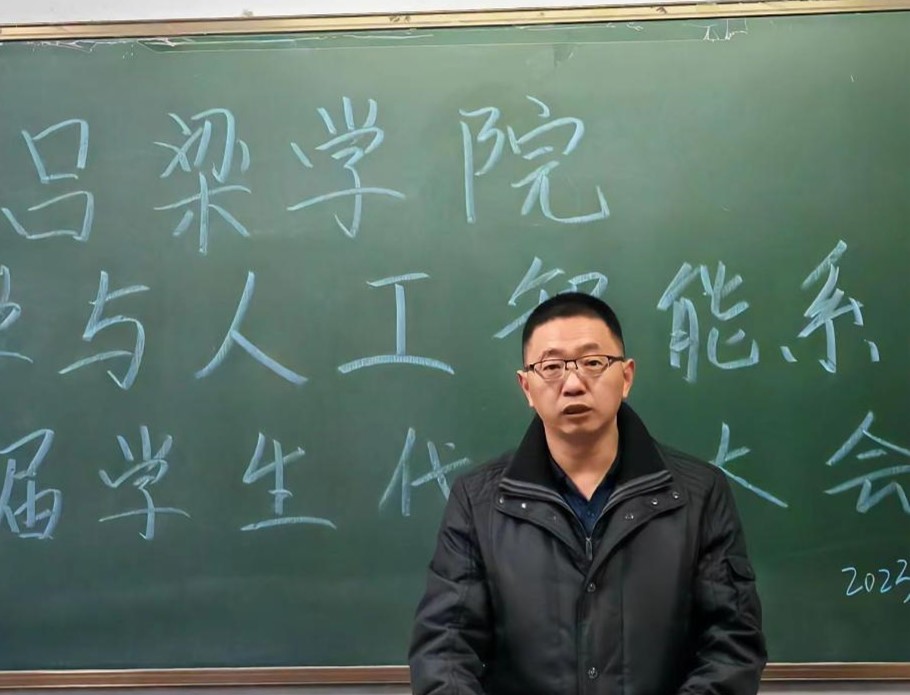 吕梁学院
与人工智能系
届学生代 大会
2023